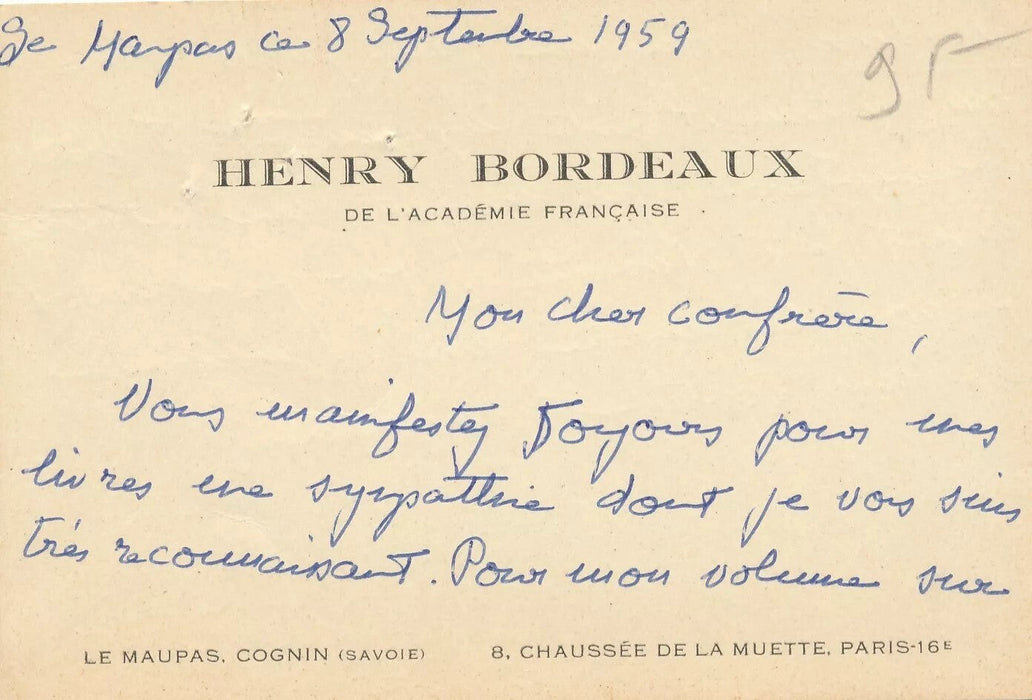 Le Maupas ce 8 Septembre 1959
95
HENRY BORDEAUX
DE L'ACADÉMIE FRANÇAISE
Mon cher confrère,
Vous manifestez toujours pour mes
livres une sympathie dont je vous suis
très reconnaissant. Pour mon volume sur
LE MAUPAS, COGNIN (SAVOIE) 8, CHAUSSÉE DE LA MUETTE, PARIS-16E